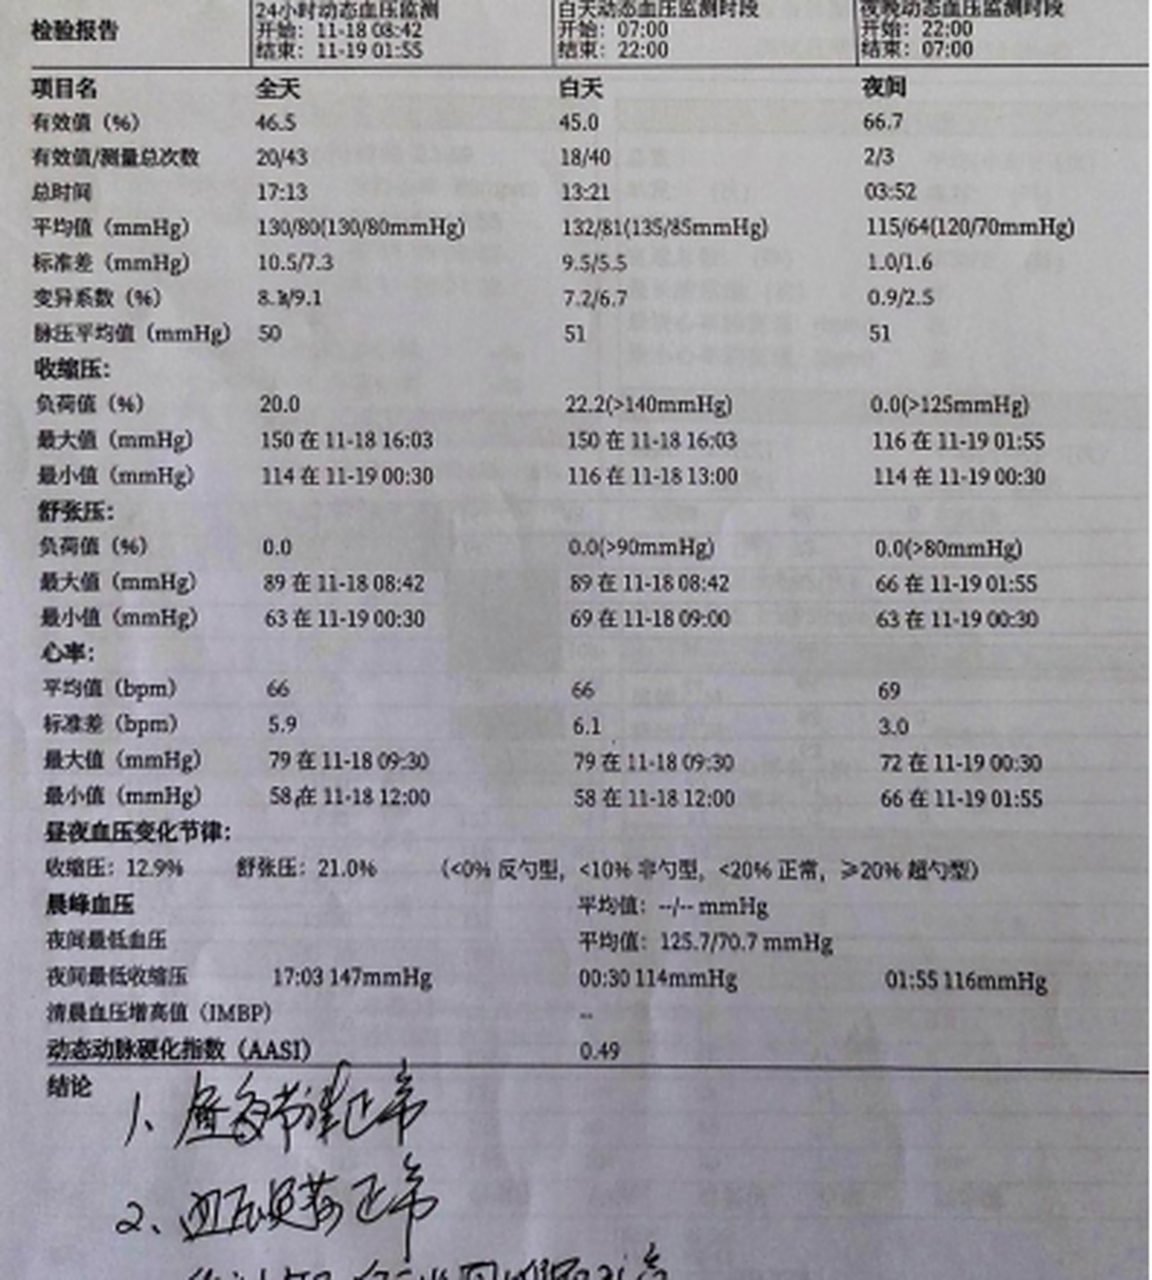 检验报告 24小时动态血压监测 白天动态血压监测时段 夜晚动态血压监测时段
开始：11-18 08:42 开始：07:00 开始：22:00
结束：11-19 01:55 结束：22:00 结束：07:00
项目名 全天 白天 夜间
有效值（%） 46.5 45.0 66.7
有效值/测量总次数 20/43 18/40 2/3
总时间 17:13 13:21 03:52
平均值（mmHg） 130/80(130/80mmHg) 132/81(135/85mmHg) 115/64(120/70mmHg)
标准差（mmHg） 10.5/7.3 9.5/5.5 1.0/1.6
变异系数（%） 8.1/9.1 7.2/6.7 0.9/2.5
脉压平均值（mmHg） 50 51 51
收缩压：
负荷值（%） 20.0 22.2(>140mmHg) 0.0(>125mmHg)
最大值（mmHg） 150 在 11-18 16:03 150 在 11-18 16:03 116 在 11-19 01:55
最小值（mmHg） 114 在 11-19 00:30 116 在 11-18 13:00 114 在 11-19 00:30
舒张压：
负荷值（%） 0.0 0.0(>90mmHg) 0.0(>80mmHg)
最大值（mmHg） 89 在 11-18 08:42 89 在 11-18 08:42 66 在 11-19 01:55
最小值（mmHg） 63 在 11-19 00:30 69 在 11-18 09:00 63 在 11-19 00:30
心率：
平均值（bpm） 66 66 69
标准差（bpm） 5.9 6.1 3.0
最大值（mmHg） 79 在 11-18 09:30 79 在 11-18 09:30 72 在 11-19 00:30
最小值（mmHg） 58 在 11-18 12:00 58 在 11-18 12:00 66 在 11-19 01:55
昼夜血压变化节律：
收缩压：12.9% 舒张压：21.0% （<0% 反勺型，<10% 非勺型，<20% 正常，≥20% 超勺型）
晨峰血压 平均值：--/-- mmHg
夜间最低血压 平均值：125.7/70.7 mmHg
夜间最低收缩压 17:03 147mmHg 00:30 114mmHg 01:55 116mmHg
清晨血压增高值（IMBP） --
动态动脉硬化指数（AASI） 0.49
结论
1、昼夜节律正常
2、血压负荷正常